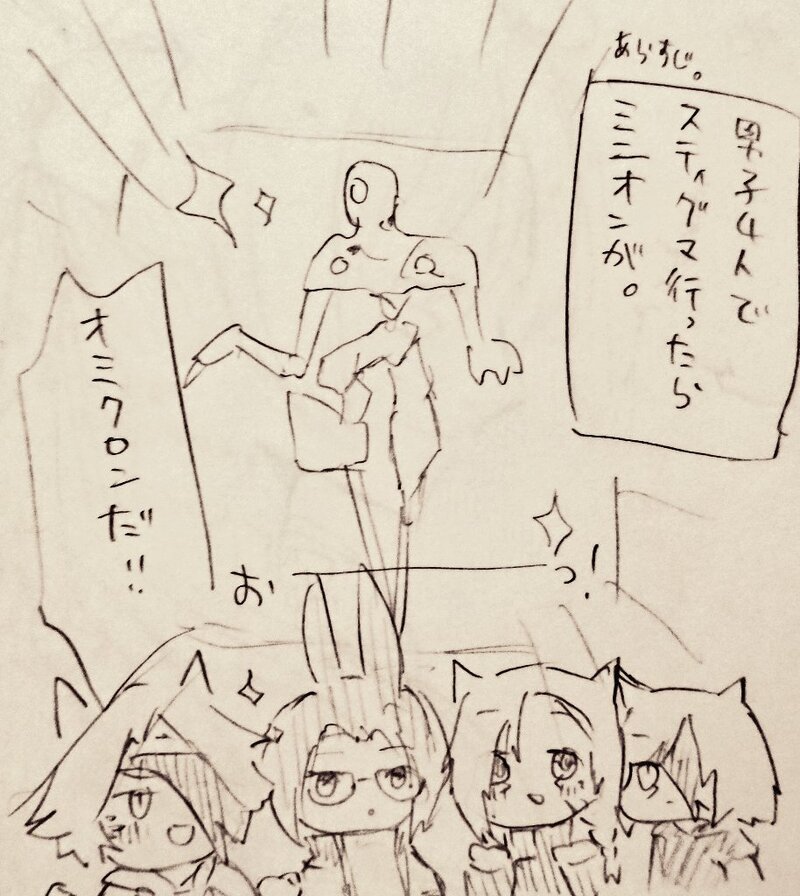 あらすじ。
男子4人で
スティグマ行ったら
ミニオンが。
オミクロンだ!!
おーっ!
Ω